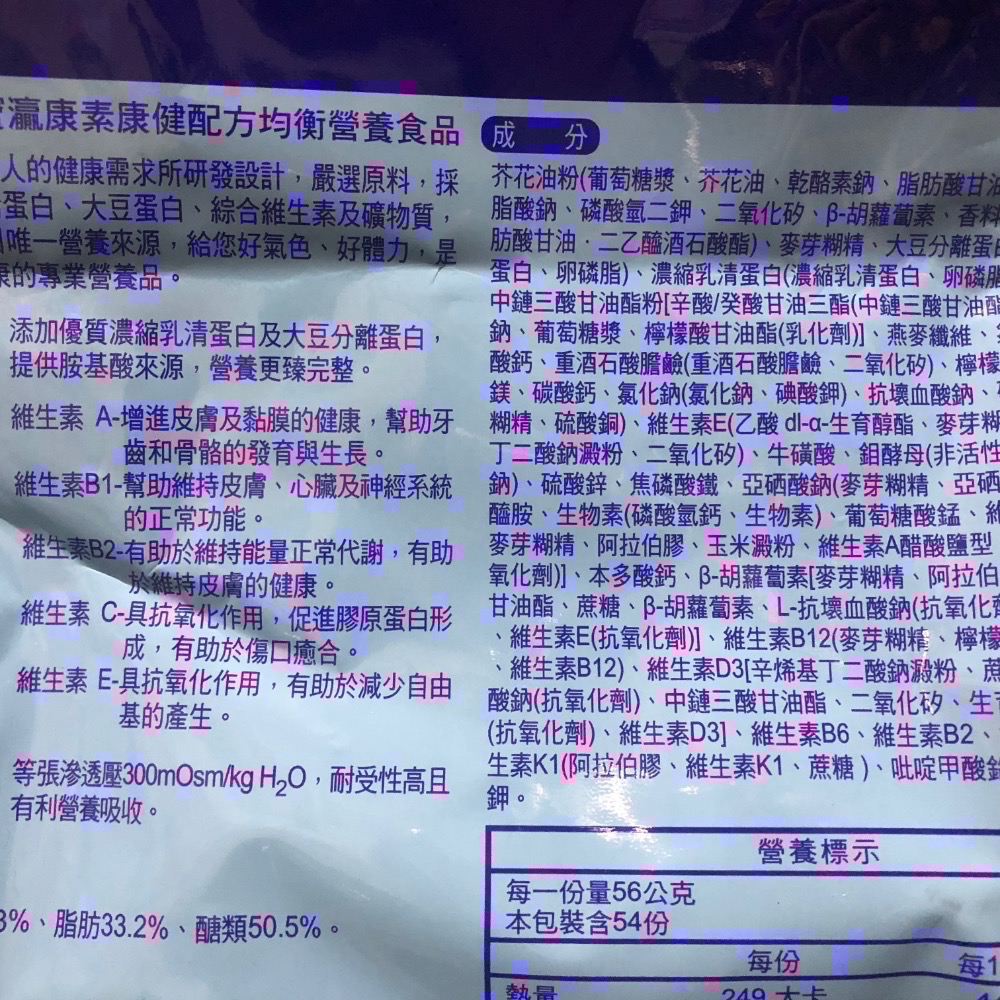 瀛康素康健配方均衡營養食品
人的健康需求所研發設計，嚴選原料，採
蛋白、大豆蛋白、綜合維生素及礦物質，
唯一營養來源，給您好氣色、好體力，是
的專業營養品。
添加優質濃縮乳清蛋白及大豆分離蛋白，
提供胺基酸來源，營養更臻完整。
維生素 A-增進皮膚及黏膜的健康，幫助牙
齒和骨骼的發育與生長。
維生素B1-幫助維持皮膚、心臟及神經系統
的正常功能。
維生素B2-有助於維持能量正常代謝，有助
於維持皮膚的健康。
維生素 C-具抗氧化作用，促進膠原蛋白形
成，有助於傷口癒合。
維生素 E-具抗氧化作用，有助於減少自由
基的產生。
等張滲透壓300mOsm/kg H₂O，耐受性高且
有利營養吸收。
3%、脂肪33.2%、醣類50.5%。
成 分
芥花油粉(葡萄糖漿、芥花油、乾酪素鈉、脂肪酸甘油
脂酸鈉、磷酸氫二鉀、二氧化矽、β-胡蘿蔔素、香料
肪酸甘油．二乙醯酒石酸酯)、麥芽糊精、大豆分離蛋白
蛋白、卵磷脂)、濃縮乳清蛋白(濃縮乳清蛋白、卵磷脂
中鏈三酸甘油酯粉[辛酸/癸酸甘油三酯(中鏈三酸甘油酯
鈉、葡萄糖漿、檸檬酸甘油酯(乳化劑)]、燕麥纖維、
酸鈣、重酒石酸膽鹼(重酒石酸膽鹼、二氧化矽)、檸檬
鎂、碳酸鈣、氯化鈉(氯化鈉、碘酸鉀)、抗壞血酸鈉、
糊精、硫酸銅)、維生素E(乙酸 dl-α-生育醇酯、麥芽糊
丁二酸鈉澱粉、二氧化矽)、牛磺酸、鉬酵母(非活性
鈉)、硫酸鋅、焦磷酸鐵、亞硒酸鈉(麥芽糊精、亞硒
醯胺、生物素(磷酸氫鈣、生物素)、葡萄糖酸錳、維
麥芽糊精、阿拉伯膠、玉米澱粉、維生素A醋酸鹽型
氧化劑)]、本多酸鈣、β-胡蘿蔔素[麥芽糊精、阿拉伯
甘油酯、蔗糖、β-胡蘿蔔素、L-抗壞血酸鈉(抗氧化
、維生素E(抗氧化劑)]、維生素B12(麥芽糊精、檸檬
、維生素B12)、維生素D3[辛烯基丁二酸鈉澱粉、蔗
酸鈉(抗氧化劑)、中鏈三酸甘油酯、二氧化矽、生
(抗氧化劑)、維生素D3]、維生素B6、維生素B2、
生素K1(阿拉伯膠、維生素K1、蔗糖)、吡啶甲酸
鉀。
營養標示
每一份量56公克
本包裝含54份
每份 每1
熱量 249 大卡